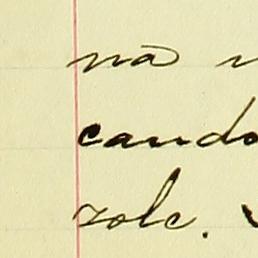 na
cando
zolc.